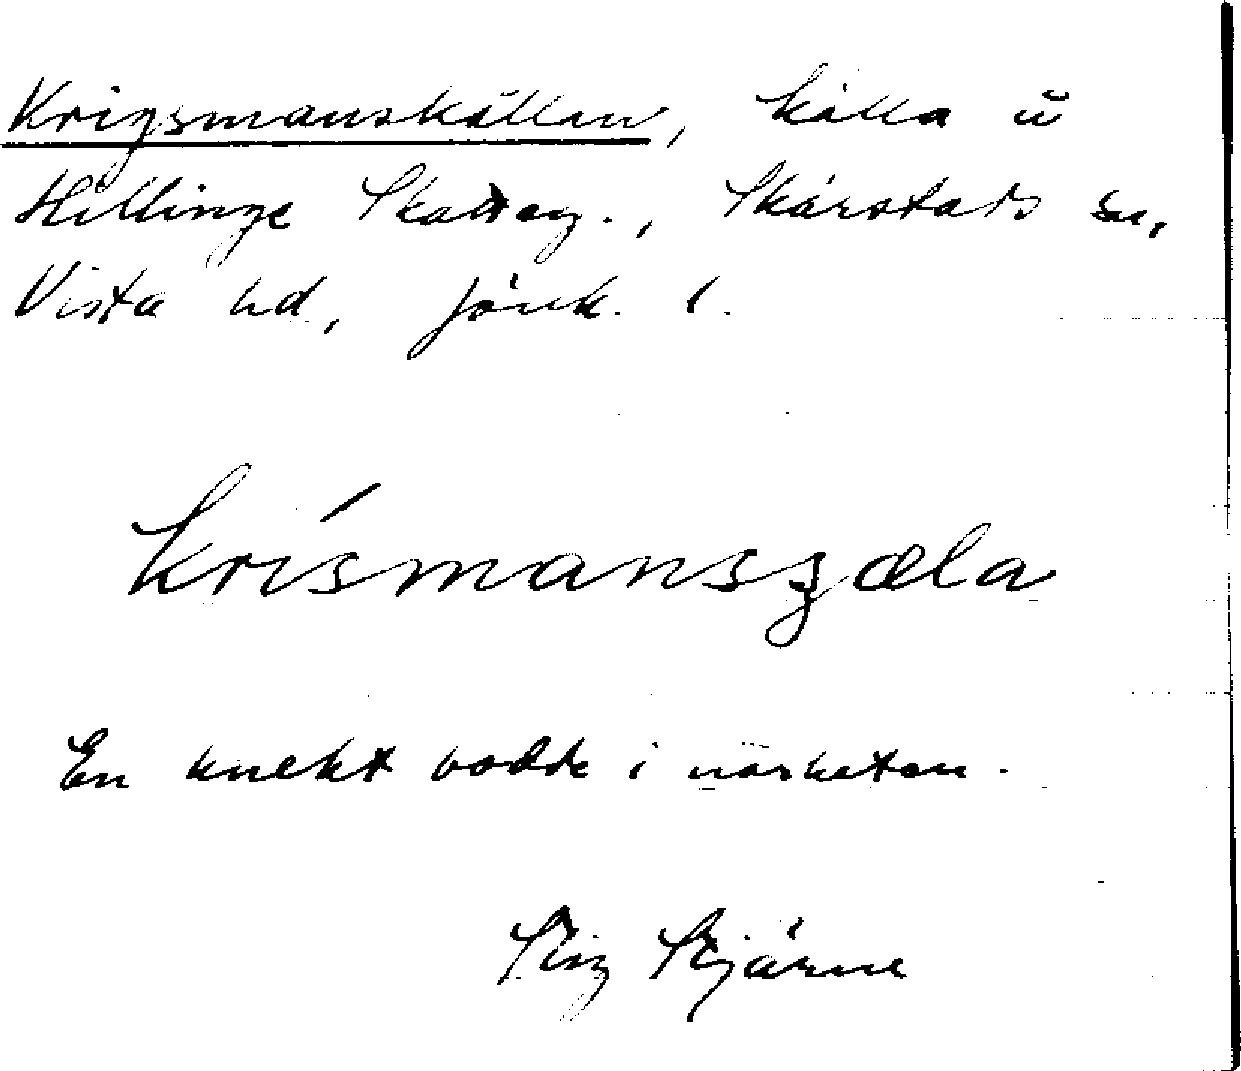 Krigsmanskällan, källa ŭ
Hillinge Skatteg., Skärstads sn,
Vista hd, Jönk. l.
krísmansʒæla
En knekt bodde i närheten.
Stig Stjärne